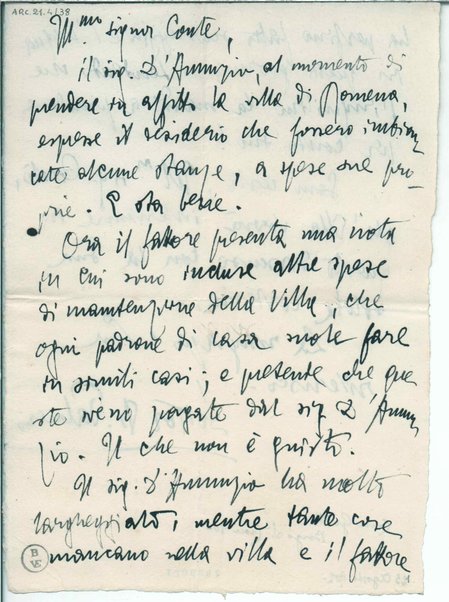 ARC.21.4/38
Ill.mo signor Conte,
il sig. D'Annunzio, al momento di
prendere in affitto la villa di Romena,
espresse il desiderio che fossero imbian-
cate alcune stanze, a spese sue pro-
prie. E sta bene.
Ora il fattore presenta una nota
in cui sono incluse altre spese
di manutenzione della Villa, che
ogni padrone di casa suole fare
in simili casi; e pretende che que-
ste sieno pagate dal sig D'Annun-
zio. Il che non è giusto.
Il sig. D'Annunzio ha molto
largheggiato, mentre tante cose
mancano nella villa e il fattore